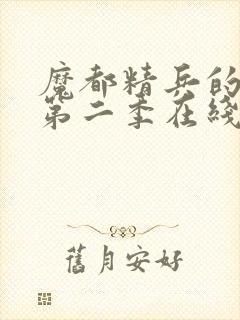 魔都精兵的
第二季在线
舊月安好